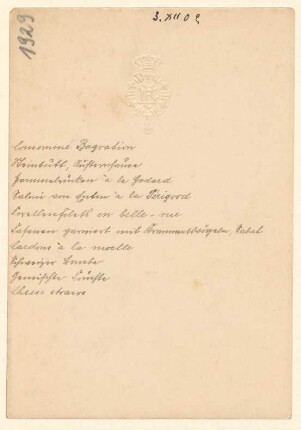 1929
3. XII 02
Consommé Bagration
Steinbutt, Austernsauce
Hammelrücken à la Godard
Salmi von Enten à la Périgord
Forellenfilets en belle-vue
Fasanen garniert mit Krammetsvögeln, Salat
Cardons à la moelle
Schweizer Bombe
Gemischte Früchte
Cheese straws